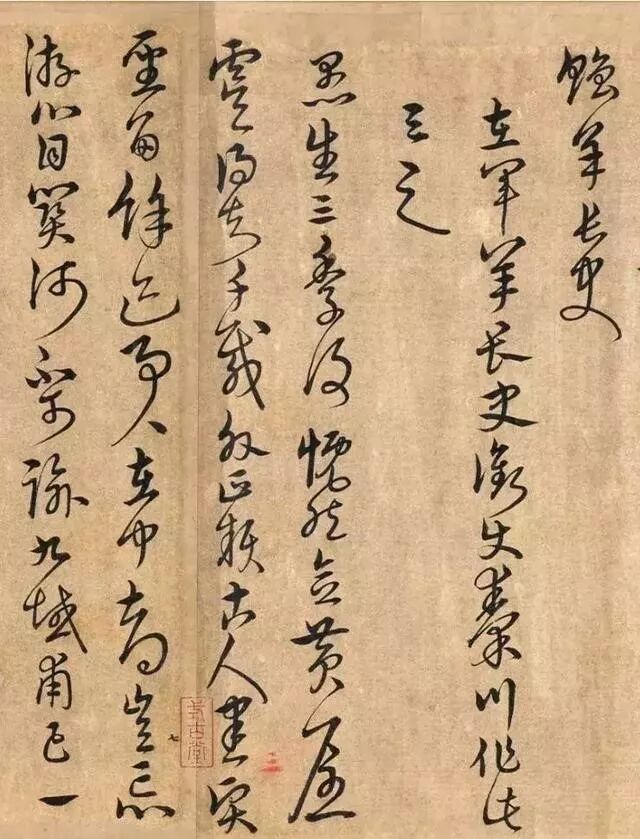 贈羊長史
左軍羊長史銜使秦川作此
与之
愚生三季後慨然念黄
虞得知千載外正賴古人書賢
聖留餘迹事々在中都豈忘
游心目關河不可踰九域甫已一